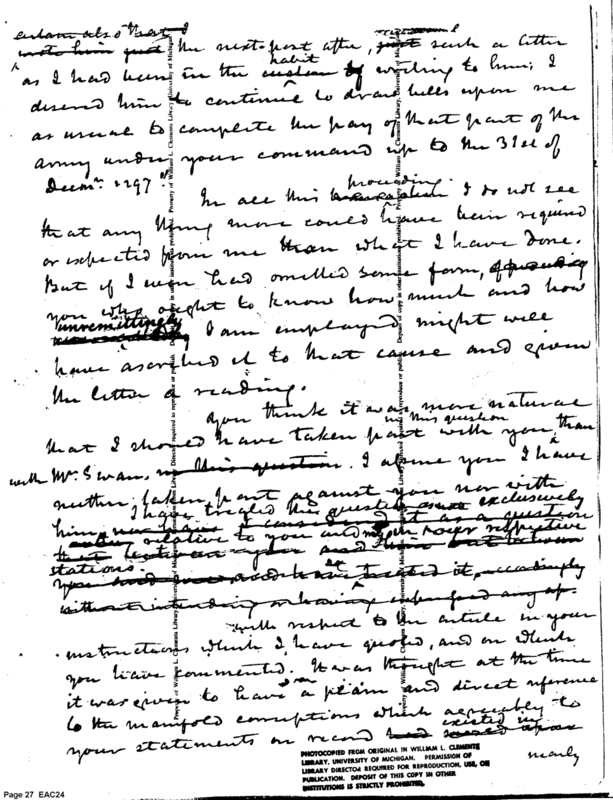 also that I
wrote him just the next post after, such a letter
as I had been in the habit custom of writing to him; I
desired him to continue to draw bills upon me
as usual to complete the pay of that part of the
army under your command up to the 31st of
Decem.r 1797."
In all this proceeding. I do not see
that any thing more could have been required
or expected from me than what I have done.
But if I even had omitted some form,
you who ought to know how much and how
unremittingly I am employed might well
have ascribed it to that cause and given
the letter a reading.
You think it was more natural
that I should have taken part with you in this question than
with Mr. Swan, in this question. I assure you I have
neither taken part against you nor with
him, I have treated this question exclusively
relative to you and respective
stations.
without intending or having
with respect to the article in your
instructions which I have quoted, and on which
you have commented. It was thought at the time
it was given to have a plain and direct reference
to the manifold corruptions which agreeably to
your statements on record existed in
nearly
Property of William L. Clements Library, University of Michigan
PHOTOCOPIED FROM ORIGINAL IN WILLIAM L. CLEMENTS
LIBRARY, UNIVERSITY OF MICHIGAN. PERMISSION OF
LIBRARY DIRECTOR REQUIRED FOR REPRODUCTION, USE, OR
PUBLICATION. DEPOSIT OF THIS COPY IN OTHER
INSTITUTIONS IS STRICTLY PROHIBITED.
Page 27 EAC24